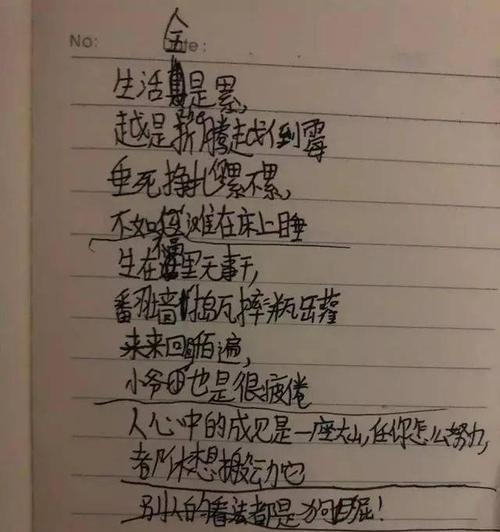 No:
全
生活是累,
越是折腾越倒霉
垂死挣扎累不累,
不如滩在床上睡
生在里无事干,
翻墙捣瓦摔瓶
来来回百遍,
小爷也是很疲倦
人心中的成见是一座大山,任你怎么努力,
都休想搬动它
别人的看法都是狗屁!